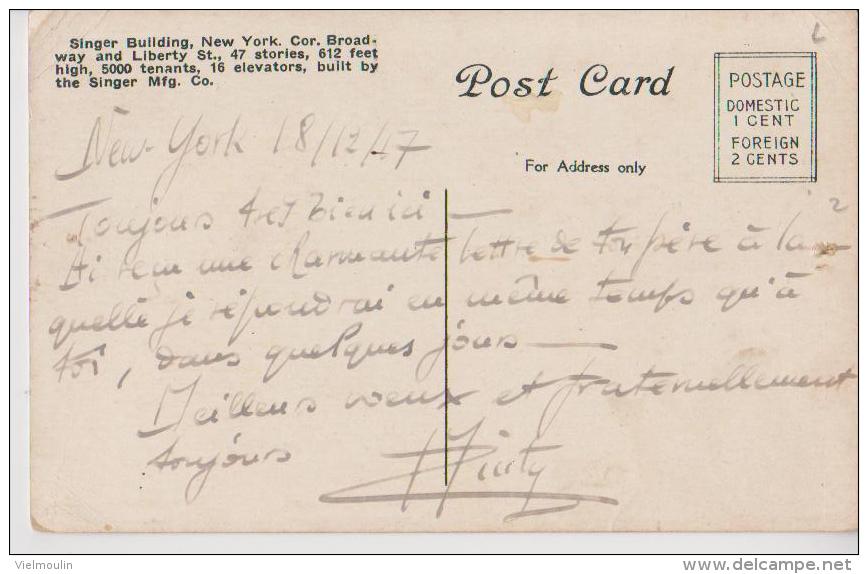 Singer Building, New York. Cor. Broad-
way and Liberty St., 47 stories, 612 feet
high, 5000 tenants, 16 elevators, built by
the Singer Mfg. Co.
Post Card
For Address only
POSTAGE
DOMESTIC
1 CENT
FOREIGN
2 CENTS
New-York 18/12/47
Toujours très bien ici —
Ai reçu une charmante lettre de ton père à la-
quelle je répondrai en même temps qu'à
toi, dans quelques jours —
Meilleurs voeux et fraternellement
toujours
2
Vielmoulin
delcampe.net